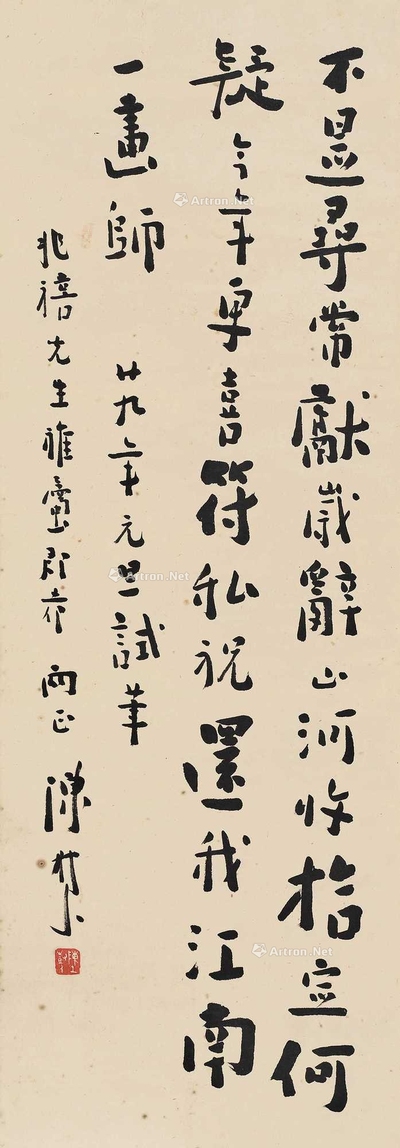 不是尋常獻歲辭山河收拾定何
疑今年更喜符私祝還我江南
一畫師 廿九年元旦試筆
兆禧先生雅屬即希 兩正 陳樹人
Artron.Net
Artron.Net
Artron.Net
Artron.Net